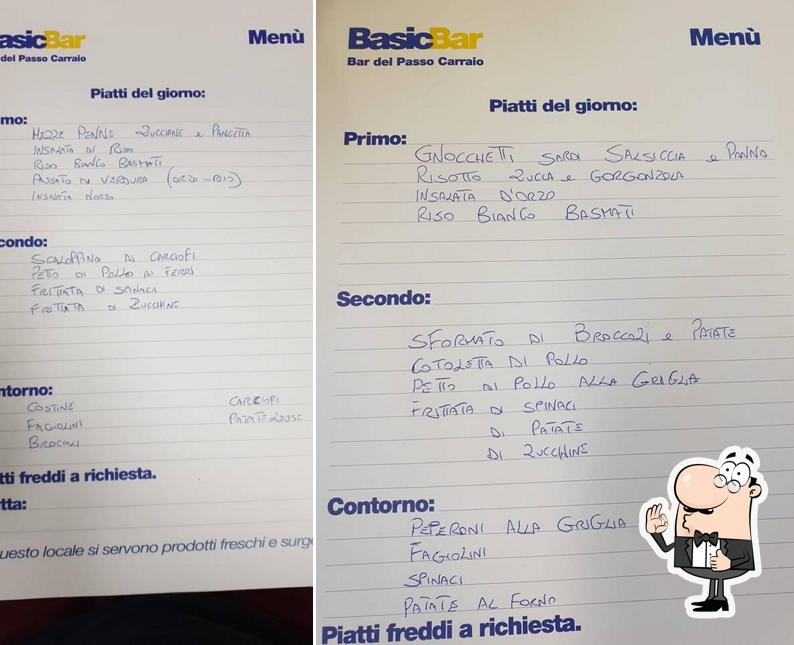 asicBar
del Passo Carraio
Menù
Piatti del giorno:
mo:
MEZZE PENNE ZUCCHINE e PANCETTA
INSALATA DI RISO
RISO BIANCO BASMATI
PASSATO DI VERDURA (ORZO-RISO)
INSALATA D'ORZO
condo:
SCALOPPINA AI CARCIOFI
PETTO DI POLLO AI FERRI
FRITTATA DI SPINACI
FRITTATA DI ZUCCHINE
ntorno:
COSTINE
CARCIOFI
FAGIOLINI
PATATE LESSE
BROCCOLI
tti freddi a richiesta.
tta:
uesto locale si servono prodotti freschi e surg
BasicBar
Bar del Passo Carraio
Menù
Piatti del giorno:
Primo:
GNOCCHETTI SARDI SALSICCIA e PANNA
RISOTTO ZUCCA e GORGONZOLA
INSALATA D'ORZO
RISO BIANCO BASMATI
Secondo:
SFORMATO DI BROCCOLI e PATATE
COTOLETTA DI POLLO
PETTO DI POLLO ALLA GRIGLIA
FRITTATA DI SPINACI
DI PATATE
DI ZUCCHINE
Contorno:
PEPERONI ALLA GRIGLIA
FAGIOLINI
SPINACI
PATATE AL FORNO
Piatti freddi a richiesta.